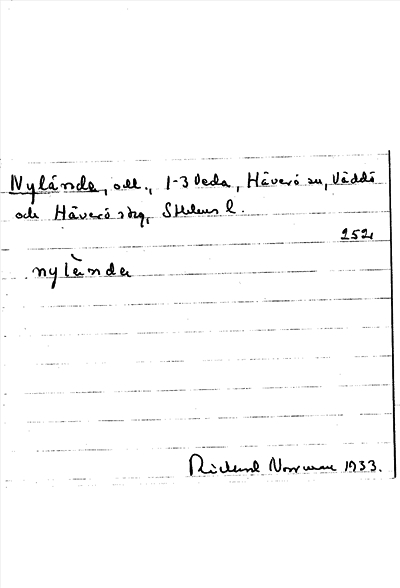 Nylända, odl., 1-3 Veda, Häverö sn, Väddö
och Häverö skg, Sthlms l.
252.
nylànda
Rickard Norrman 1933.